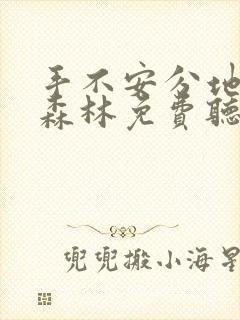 手不安分地
森林免费聽
兜兜搬小海星